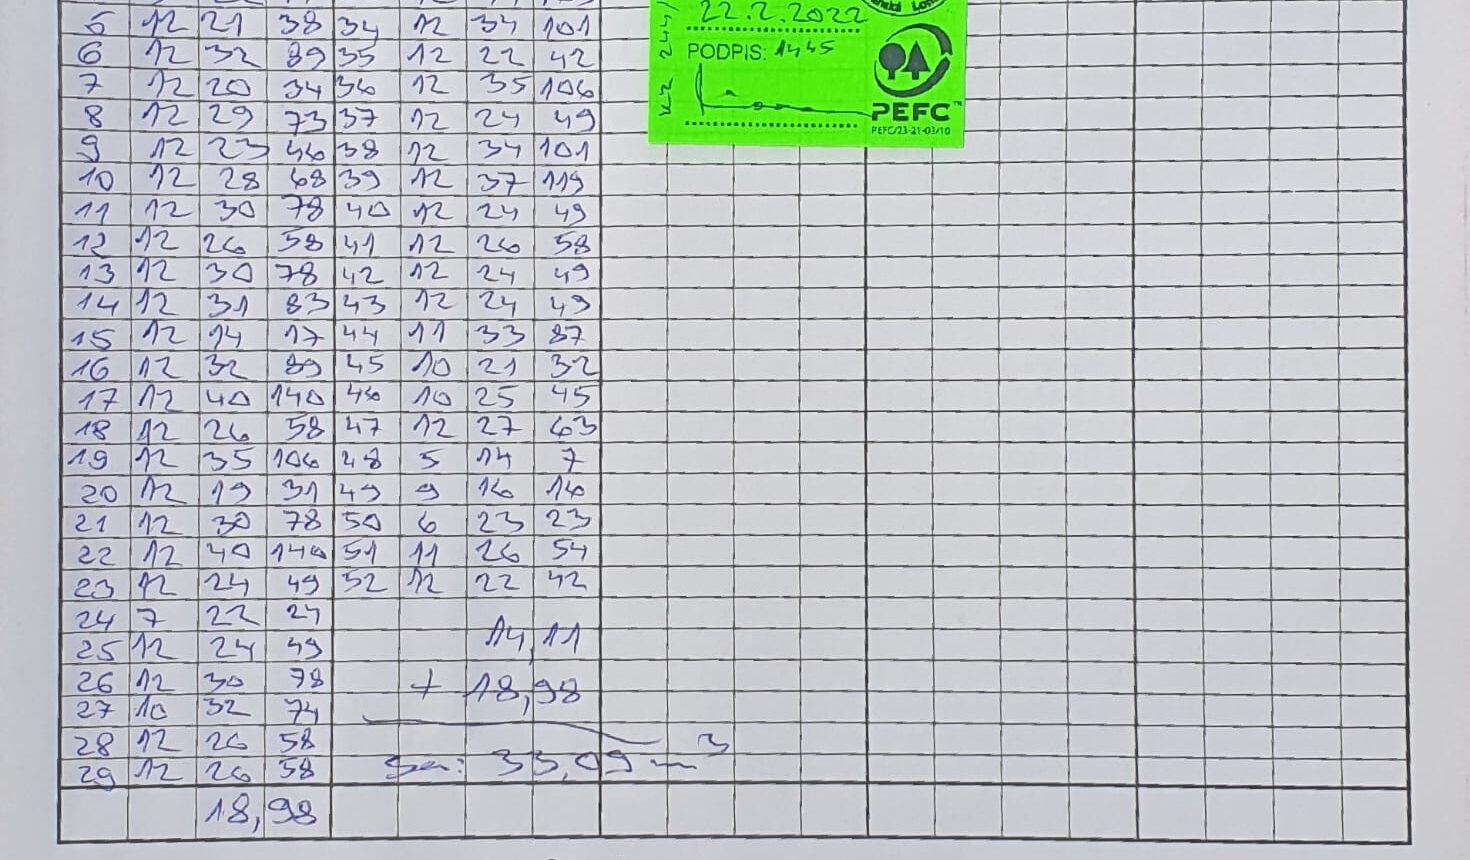 22.2.2022
5 12 21 38 34 12 34 101
PODPIS: 1445
6 12 32 89 35 12 22 42
7 12 20 34 36 12 35 106
8 12 29 73 37 12 24 49
PEFC™
PEFC/23-21-03/10
9 12 23 46 38 12 34 101
10 12 28 68 39 12 37 119
11 12 30 78 40 12 24 49
12 12 26 58 41 12 26 58
13 12 30 78 42 12 24 49
14 12 31 83 43 12 24 49
15 12 14 17 44 11 33 87
16 12 32 89 45 10 21 32
17 12 40 140 46 10 25 45
18 12 26 58 47 12 27 63
19 12 35 106 48 5 14 7
20 12 19 31 49 9 16 16
21 12 30 78 50 6 23 23
22 12 40 140 51 11 26 54
23 12 24 49 52 12 22 42
24 7 22 24
25 12 24 49 14,11
26 12 30 78 + 18,98
27 10 32 74
28 12 26 58
29 12 26 58 Sa: 33,09 m3
18,98